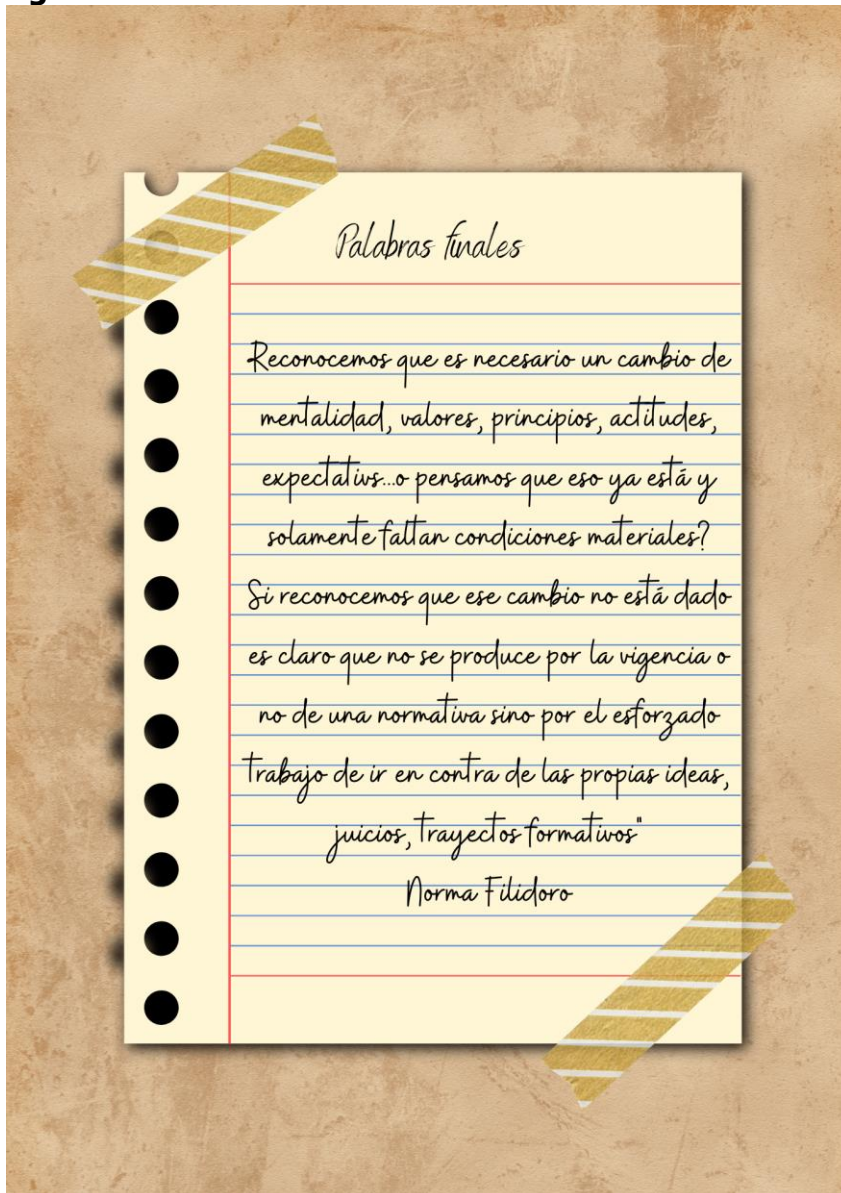 Palabras finales
Reconocemos que es necesario un cambio de
mentalidad, valores, principios, actitudes,
expectativs...o pensamos que eso ya está y
solamente faltan condiciones materiales?
Si reconocemos que ese cambio no está dado
es claro que no se produce por la vigencia o
no de una normativa sino por el esforzado
trabajo de ir en contra de las propias ideas,
juicios, trayectos formativos"
Norma Filidoro